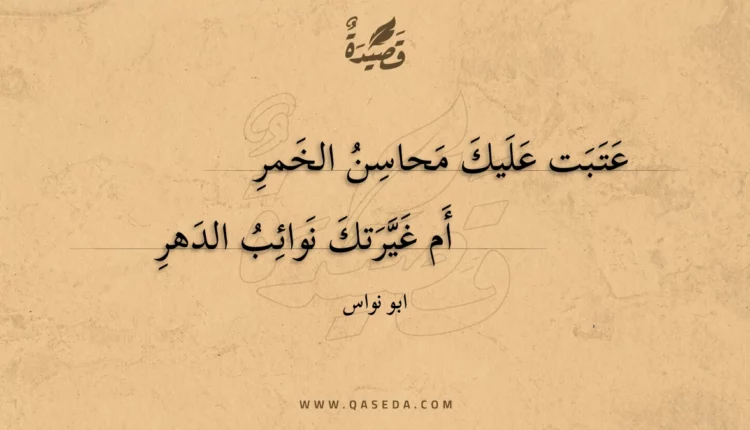 قَصِيدَةٌ
عَتَبَت عَلَيكَ مَحاسِنُ الخَمرِ
أَم غَيَّرَتكَ نَوائِبُ الدَهرِ
ابو نواس
WWW.QASEDA.COM